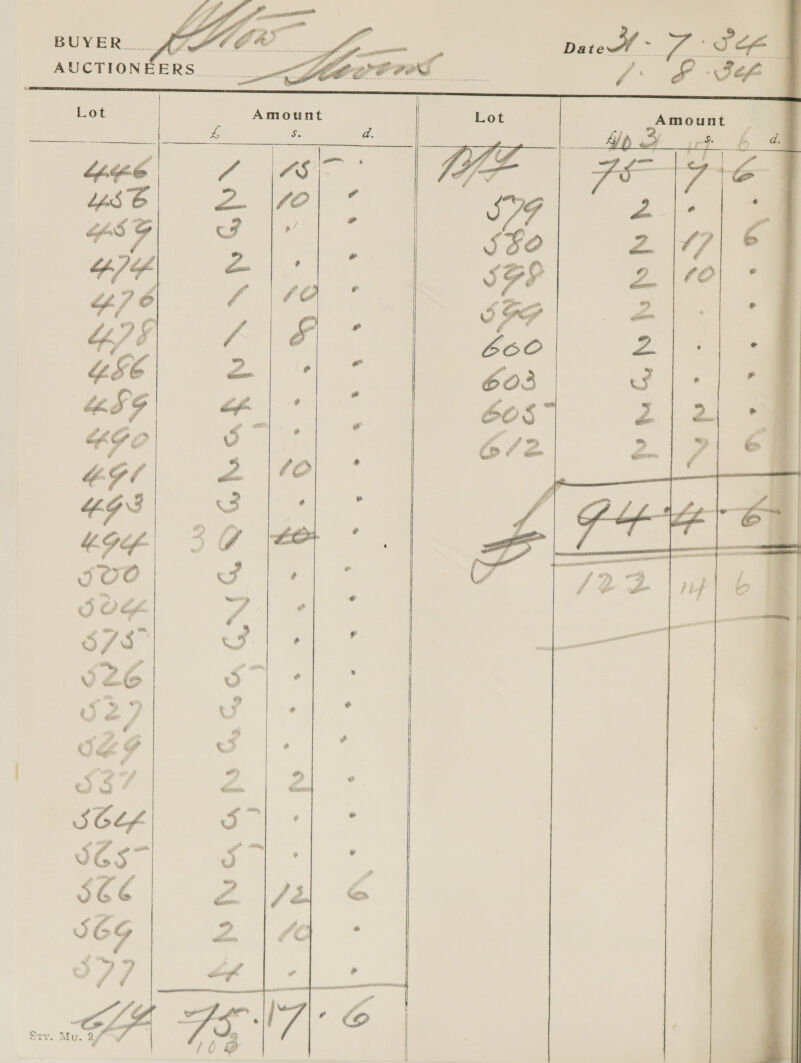 BUYER
Date 31-7-34
AUCTIONEERS Stevens 1. 8. 34
Lot Amount Lot Amount
£ s. d. s. 6 d.
446 1 15 - . B/F 75 17 6
456 2 10 . 579 2 . .
459 3 . . 580 2 17 6
474 2 . . 598 2 10 .
476 1 10 . 599 2 . .
478 1 8 . 600 2 . .
486 2 . . 603 3 . .
489 4 . . 605 2 2 .
490 5 . . 612 2 7 6
491 2 10 . £ 94 . 4 . 6
493 3 . . 122 14 6
494 30 10 .
500 3 . .
504 7 . .
575 3 . .
526 5 . .
527 3 . .
529 3 . .
537 2 2 .
564 5 . .
565 5 . .
566 2 12 6
569 2 10 .
577 4 . .
C/F 75 . 17 . 6
Sty. Mu. 2